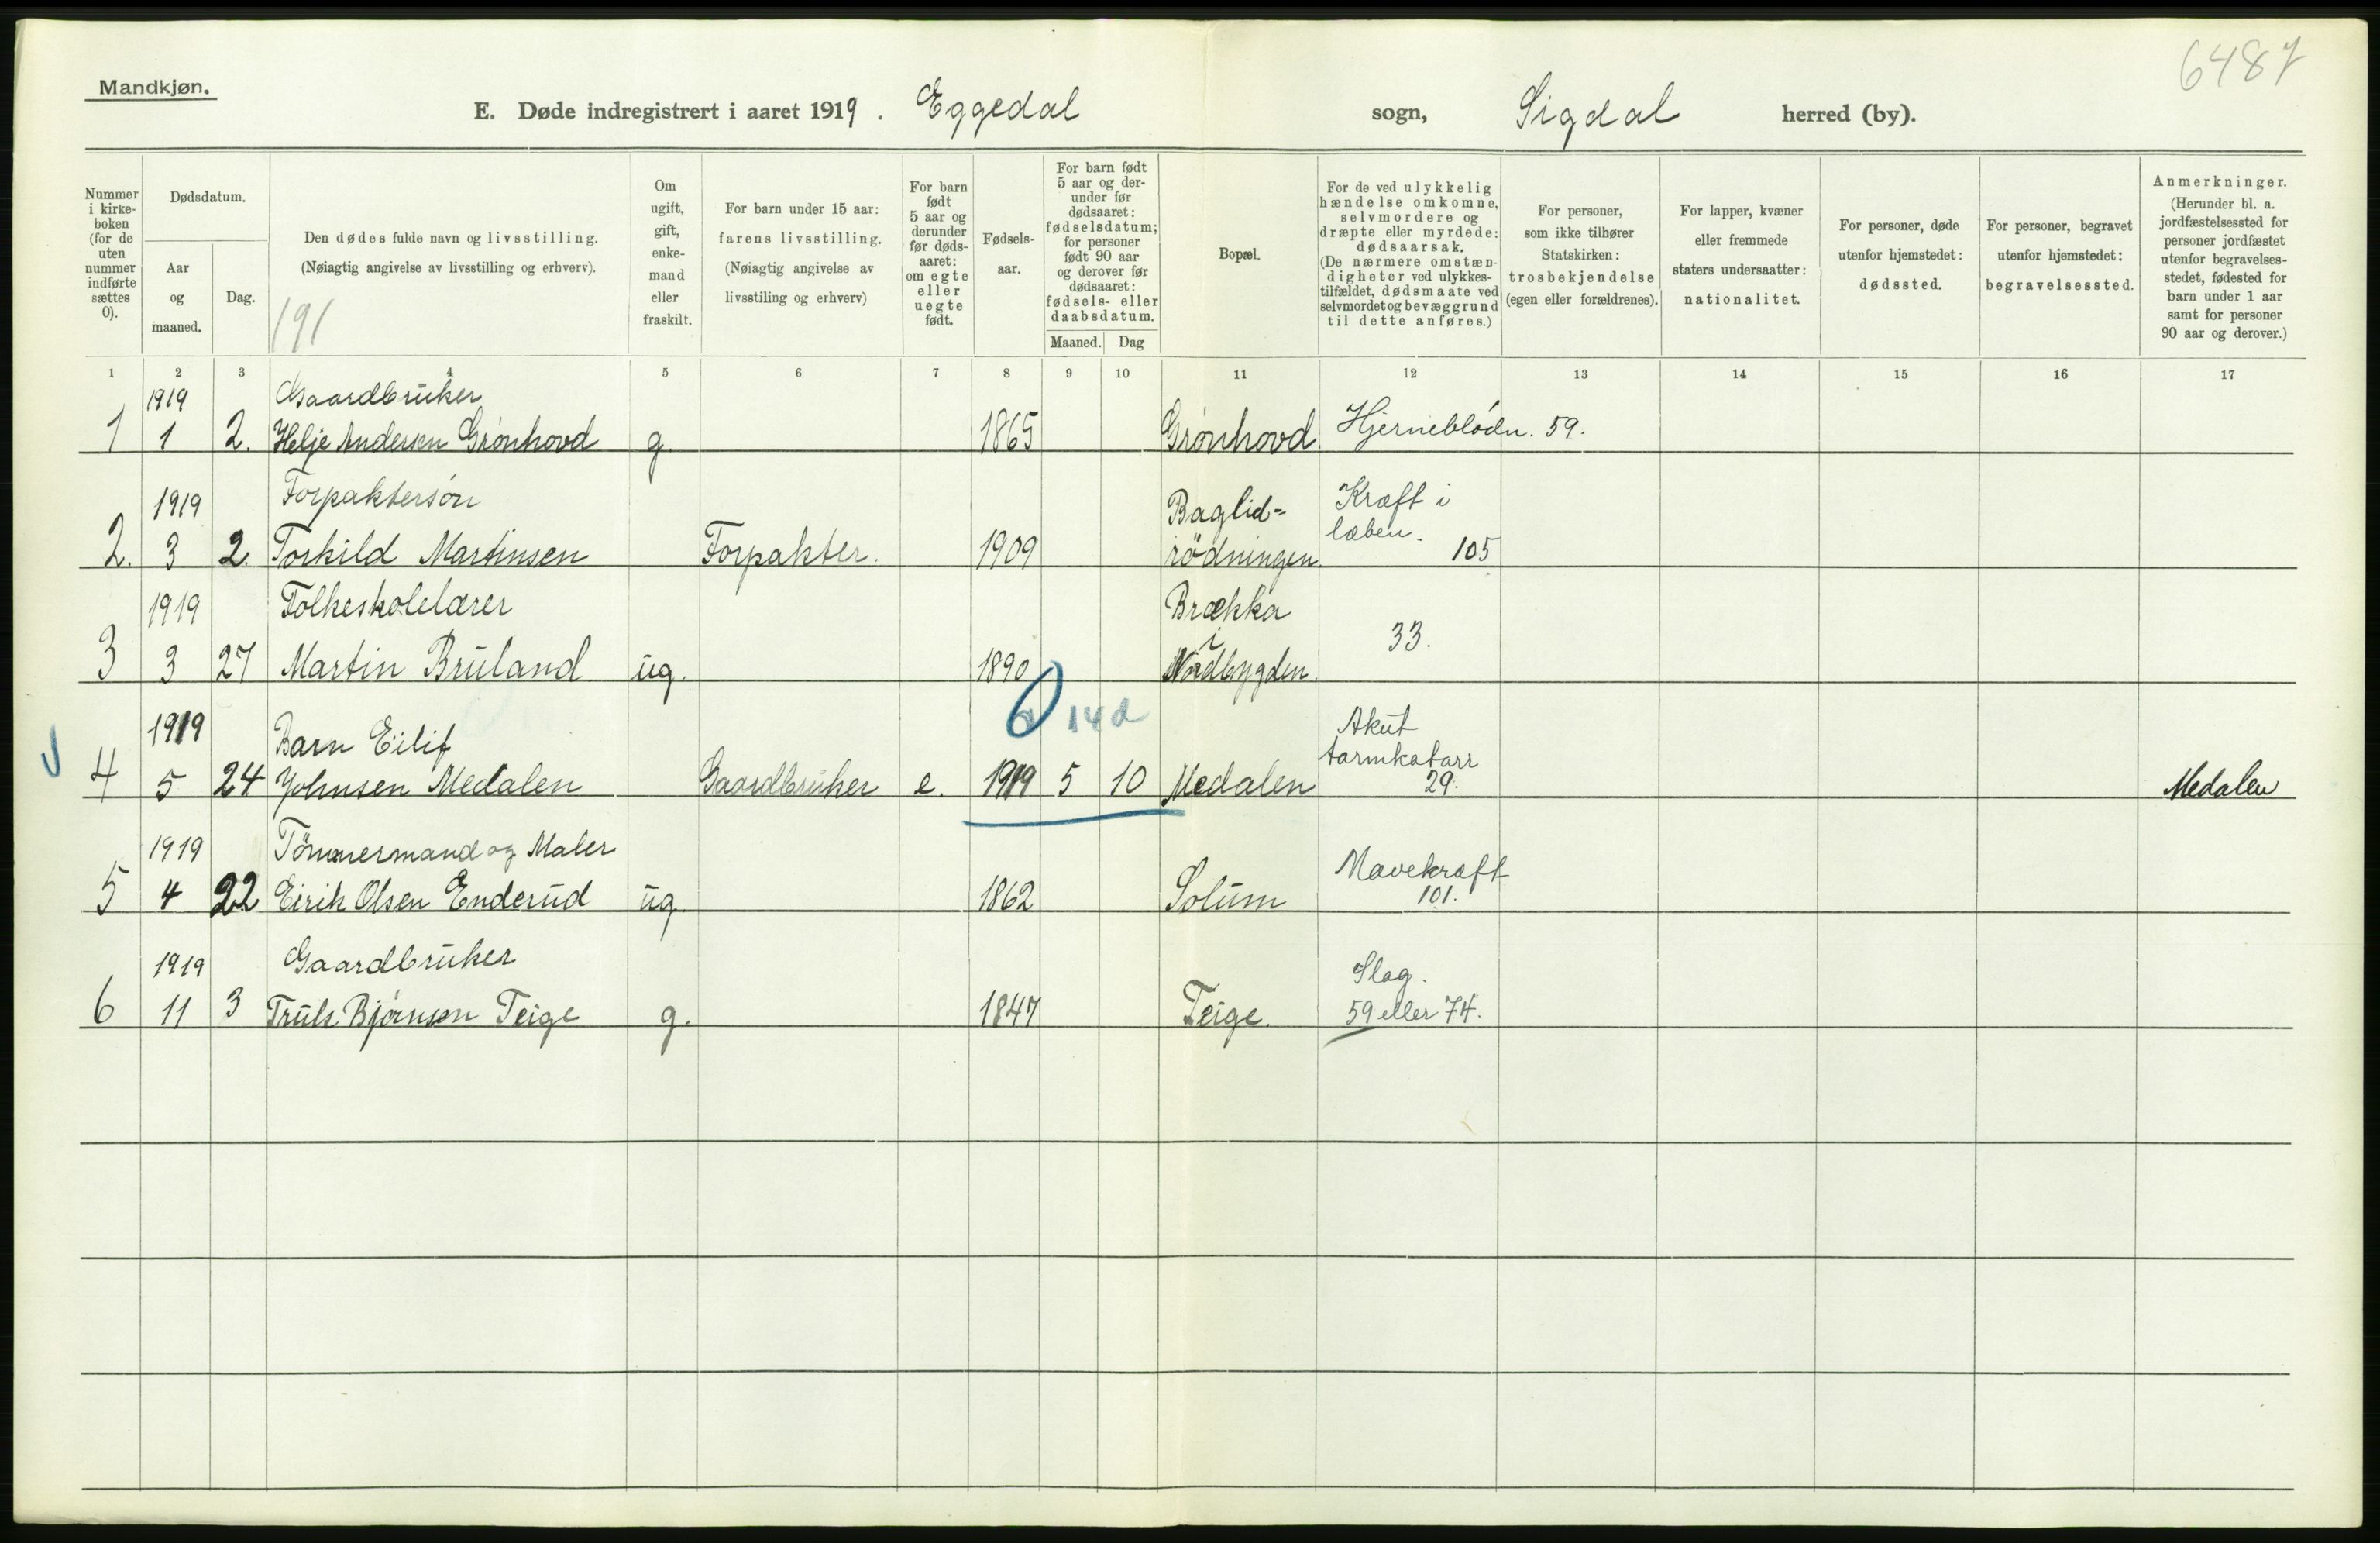 6487
Mandkjøn.
E. Døde indregistrert i aaret 1919. Eggedal sogn, Sigdal herred (by).
Nummer i kirke-boken (for de uten nummer indførte sættes 0).
Dødsdatum.
Aar og maaned.
Dag.
Den dødes fulde navn og livsstilling.
(Nøiagtig angivelse av livsstilling og erhverv).
191
Om ugift, gift, enke-mand eller fraskilt.
For barn under 15 aar: farens livsstilling.
(Nøiagtig angivelse av livsstiling og erhverv)
For barn født 5 aar og derunder før døds-aaret: om egte eller uegte født.
Fødsels-aar.
For barn født 5 aar og der-under før dødsaaret: fødselsdatum; for personer født 90 aar og derover før dødsaaret: fødsels- eller daabsdatum.
Maaned. Dag
Bopæl.
For de ved ulykkelig hændelse omkomne, selvmordere og dræpte eller myrdede: dødsaarsak. (De nærmere omstæn-digheter ved ulykkes-tilfældet, dødsmaate ved selvmordet og bevæggrund til dette anføres.)
For personer, som ikke tilhører Statskirken: trosbekjendelse (egen eller forældrenes).
For lapper, kvæner eller fremmede staters undersaatter: nationalitet.
For personer, døde utenfor hjemstedet: dødssted.
For personer, begravet utenfor hjemstedet: begravelsessted.
Anmerkninger. (Herunder bl. a. jordfæstelsessted for personer jordfæstet utenfor begravelses-stedet, fødested for barn under 1 aar samt for personer 90 aar og derover.)
1 2 3 4 5 6 7 8 9 10 11 12 13 14 15 16 17
1919 Gaardbruker
1 1 2. Helje Andersen Grønhovd g. 1865 Grønhovd. Hjerneblödn. 59.
1919 Forpaktersön Baglid= Kræft i
læben.
2. 3 2. Torkild Martinsen Forpakter. 1909 rödningen. 105
1919 Folkeskolelærer Brækka
i 33.
3 3 27 Martin Bruland ug. 1890 Nordbygden.
0 14 d
1919 Barn Eilif Akut
tarmkatarr
4 5 24 Johnsen Medalen Gaardbruker e. 1919 5 10 Medalen 29. Medalen
1919 Tömmermand og Maler Mavekræft
5 4 22 Eirik Olsen Enderud ug 1862 Solum 101.
1919 Gaardbruker Slag.
6 11 3 Truls Bjørnsen Teige g. 1847 Teige. 59 eller 74.